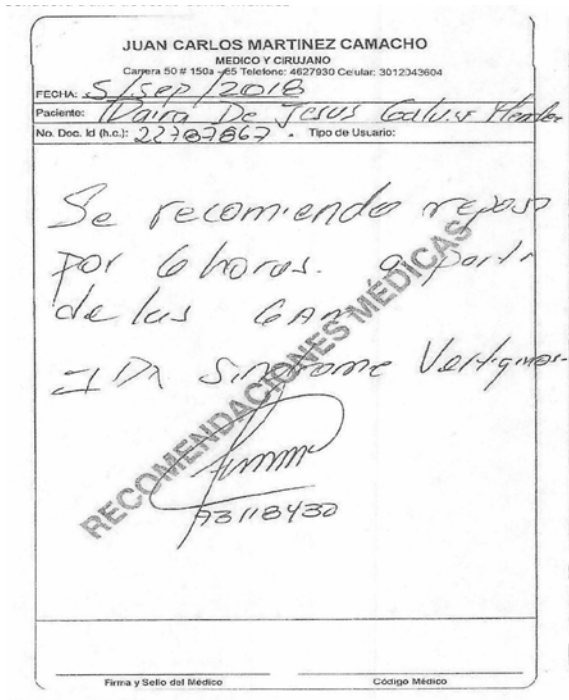 JUAN CARLOS MARTINEZ CAMACHO
MEDICO Y CIRUJANO
Carrera 50 # 150a -65 Telefono: 4627930 Celular: 3012043604
FECHA: 5/Sep/2018
Paciente: Daira De Jesus
No. Doc. Id (h.c.): 22787867 Tipo de Usuario:
Se recomiendo reposo
por 6 horas. a partir
de las 6 AM
IDx Sindrome
RECOMENDACIONES MÉDICAS
73118430
Firma y Sello del Médico Código Médico